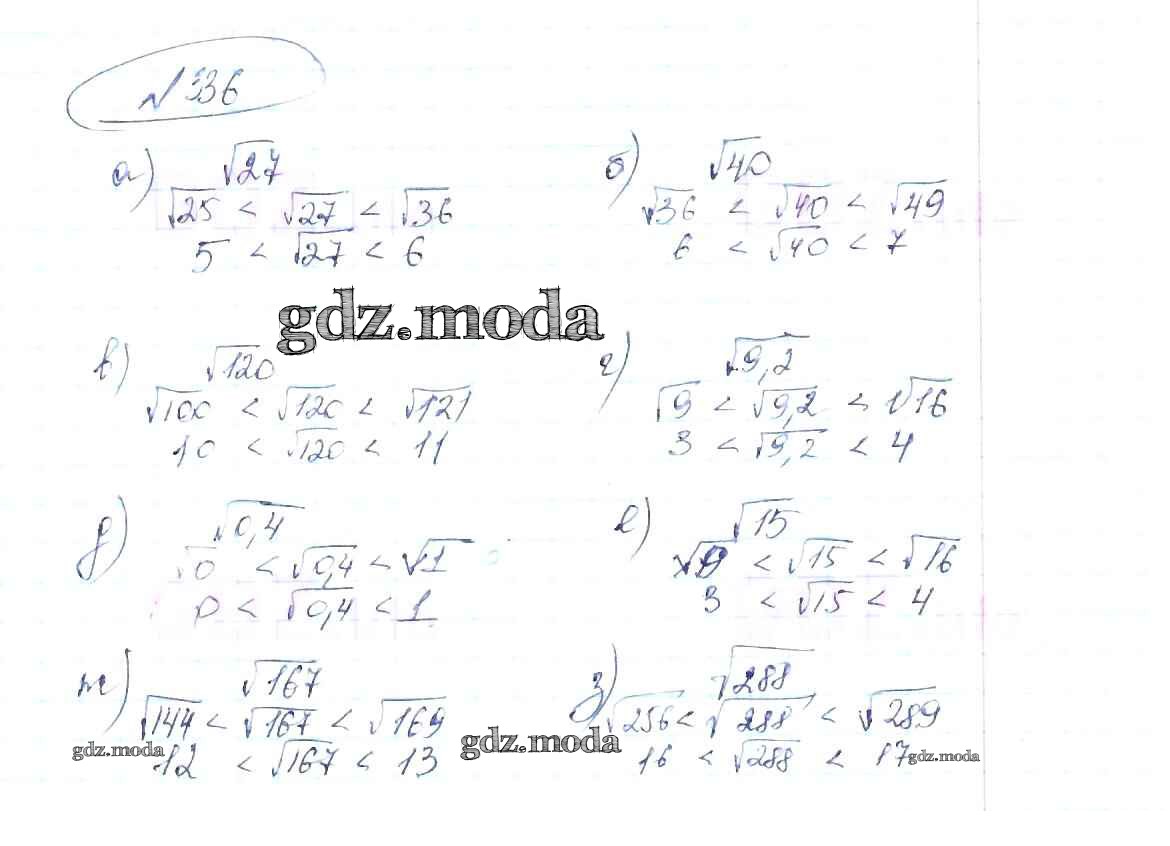 № 336
а) √27
√25 < √27 < √36
5 < √27 < 6
б) √40
√36 < √40 < √49
6 < √40 < 7
gdz.moda
в) √120
√100 < √120 < √121
10 < √120 < 11
г) √9,2
√9 < √9,2 < √16
3 < √9,2 < 4
д) √0,4
√0 < √0,4 < √1
0 < √0,4 < 1
е) √15
√9 < √15 < √16
3 < √15 < 4
ж) √167
√144 < √167 < √169
12 < √167 < 13
gdz.moda
gdz.moda
з) √288
√256 < √288 < √289
16 < √288 < 17
gdz.moda